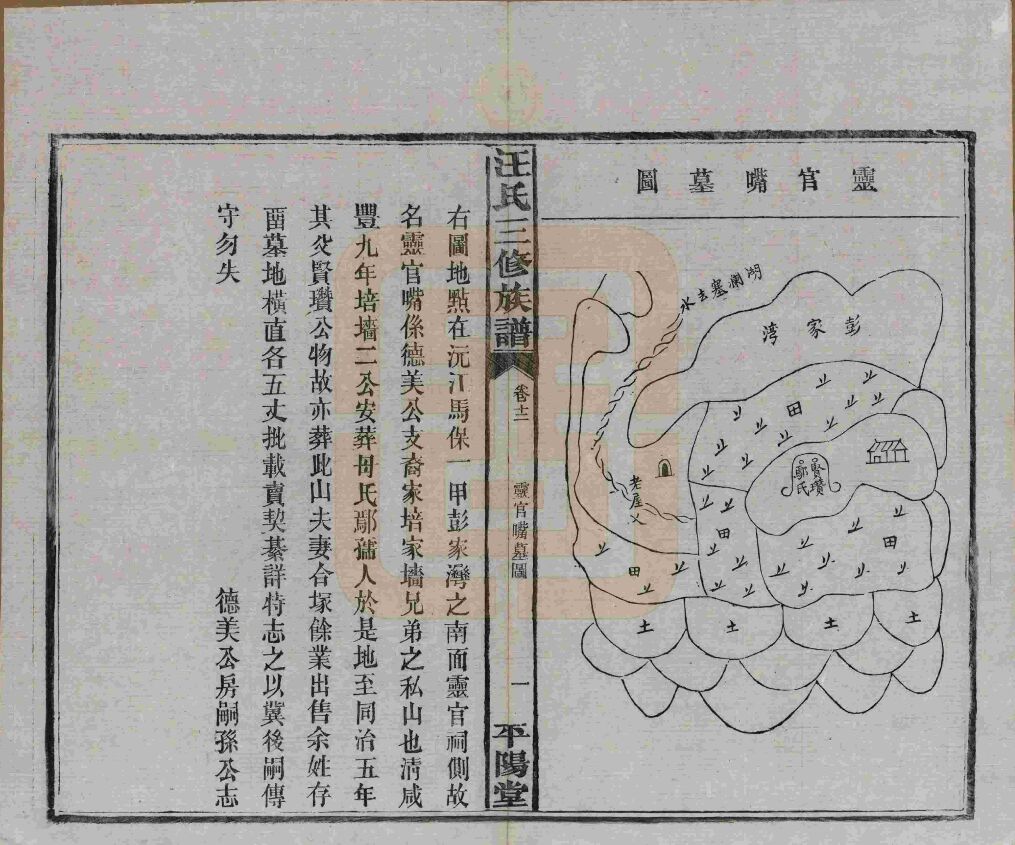 靈官嘴墓圖
湖瀾塞去水
彭家湾
田
賢瓚
鄢氏
老屋
田
田
田
土
土
土
土
汪氏三修族譜
卷十二
靈官嘴墓圖
一
平陽堂
右圖地點在沅江馬保一甲彭家灣之南面靈官祠側故
名靈官嘴係德美公支裔家培家墻兄弟之私山也清咸
豐九年培墻二公安葬母氏鄢孺人於是地至同治五年
其父賢瓚公物故亦葬此山夫妻合塚餘業出售余姓存
畱墓地橫直各五丈批載賣契綦詳特志之以冀後嗣傳
守勿失
德美公房嗣孫公志